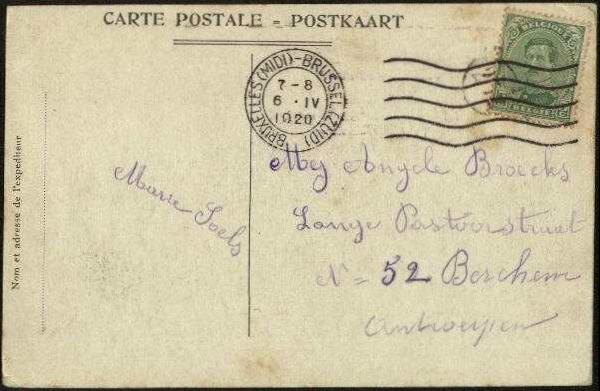 CARTE POSTALE = POSTKAART
BRUXELLES (MIDI) - BRUSSEL (ZUID)
7-8
6 · IV
1920
BELGIQUE
Nom et adresse de l'expéditeur
Marie Soels
Mej Angele Broeckx
Lange Pastoorstraat
N = 52 Berchem
Antwerpen